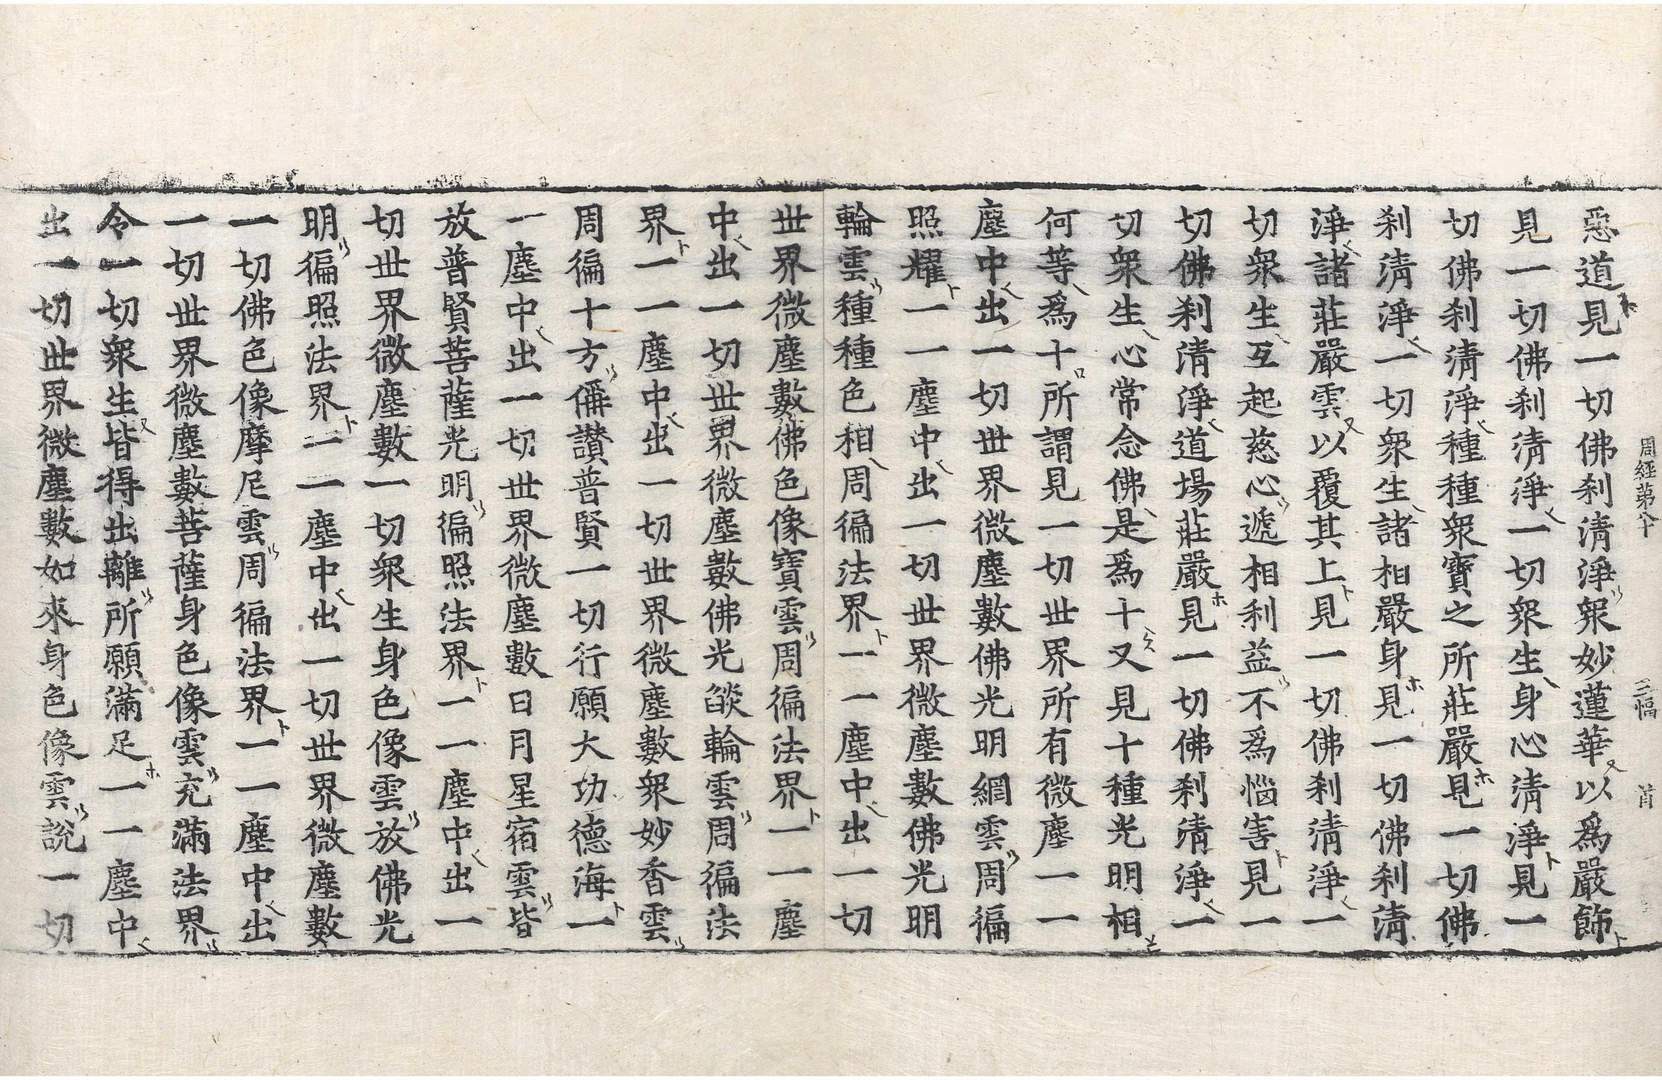 周經第八十 三幅 首
惡道見一切佛刹清淨衆妙蓮華以爲嚴飾
見一切佛刹清淨一切衆生身心清淨見一
切佛刹清淨種種衆寶之所莊嚴見一切佛
刹清淨一切衆生諸相嚴身見一切佛刹清
淨諸莊嚴雲以覆其上見一切佛刹清淨一
切衆生互起慈心遞相利益不爲惱害見一
切佛刹清淨道場莊嚴見一切佛刹清淨一
切衆生心常念佛是爲十又見十種光明相
何等爲十所謂見一切世界所有微塵一一
塵中出一切世界微塵數佛光明網雲周徧
照耀一一塵中出一切世界微塵數佛光明
輪雲種種色相周徧法界一一塵中出一切
世界微塵數佛色像寶雲周徧法界一一塵
中出一切世界微塵數佛光燄輪雲周徧法
界一一塵中出一切世界微塵數衆妙香雲
周徧十方稱讃普賢一切行願大功德海一
一塵中出一切世界微塵數日月星宿雲皆
放普賢菩薩光明徧照法界一一塵中出一
切世界微塵數一切衆生身色像雲放佛光
明徧照法界一一塵中出一切世界微塵數
一切佛色像摩尼雲周徧法界一一塵中出
一切世界微塵數菩薩身色像雲充滿法界
令一切衆生皆得出離所願滿足一一塵中
出一切世界微塵數如來身色像雲說一切